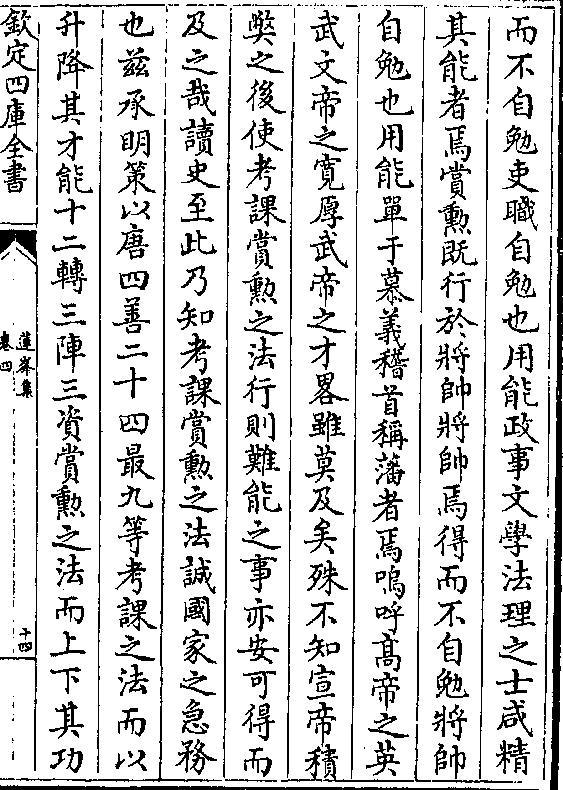 而不自勉吏職自勉也用能政事文學法理之士咸精
其能者焉賞勲既行於將帥將帥焉得而不自勉將帥
自勉也用能單于慕義稽首稱藩者焉嗚呼髙帝之英
武文帝之寛厚武帝之才畧雖莫及矣殊不知宣帝積
弊之後使考課賞勲之法行則難能之事亦安可得而
及之哉讀史至此乃知考課賞勲之法誠國家之急務
也兹承明策以唐四善二十四最九等考課之法而以
升降其才能十二轉三陣三資賞勲之法而上下其功
欽定四庫全書
蓮峯集
卷四
十四